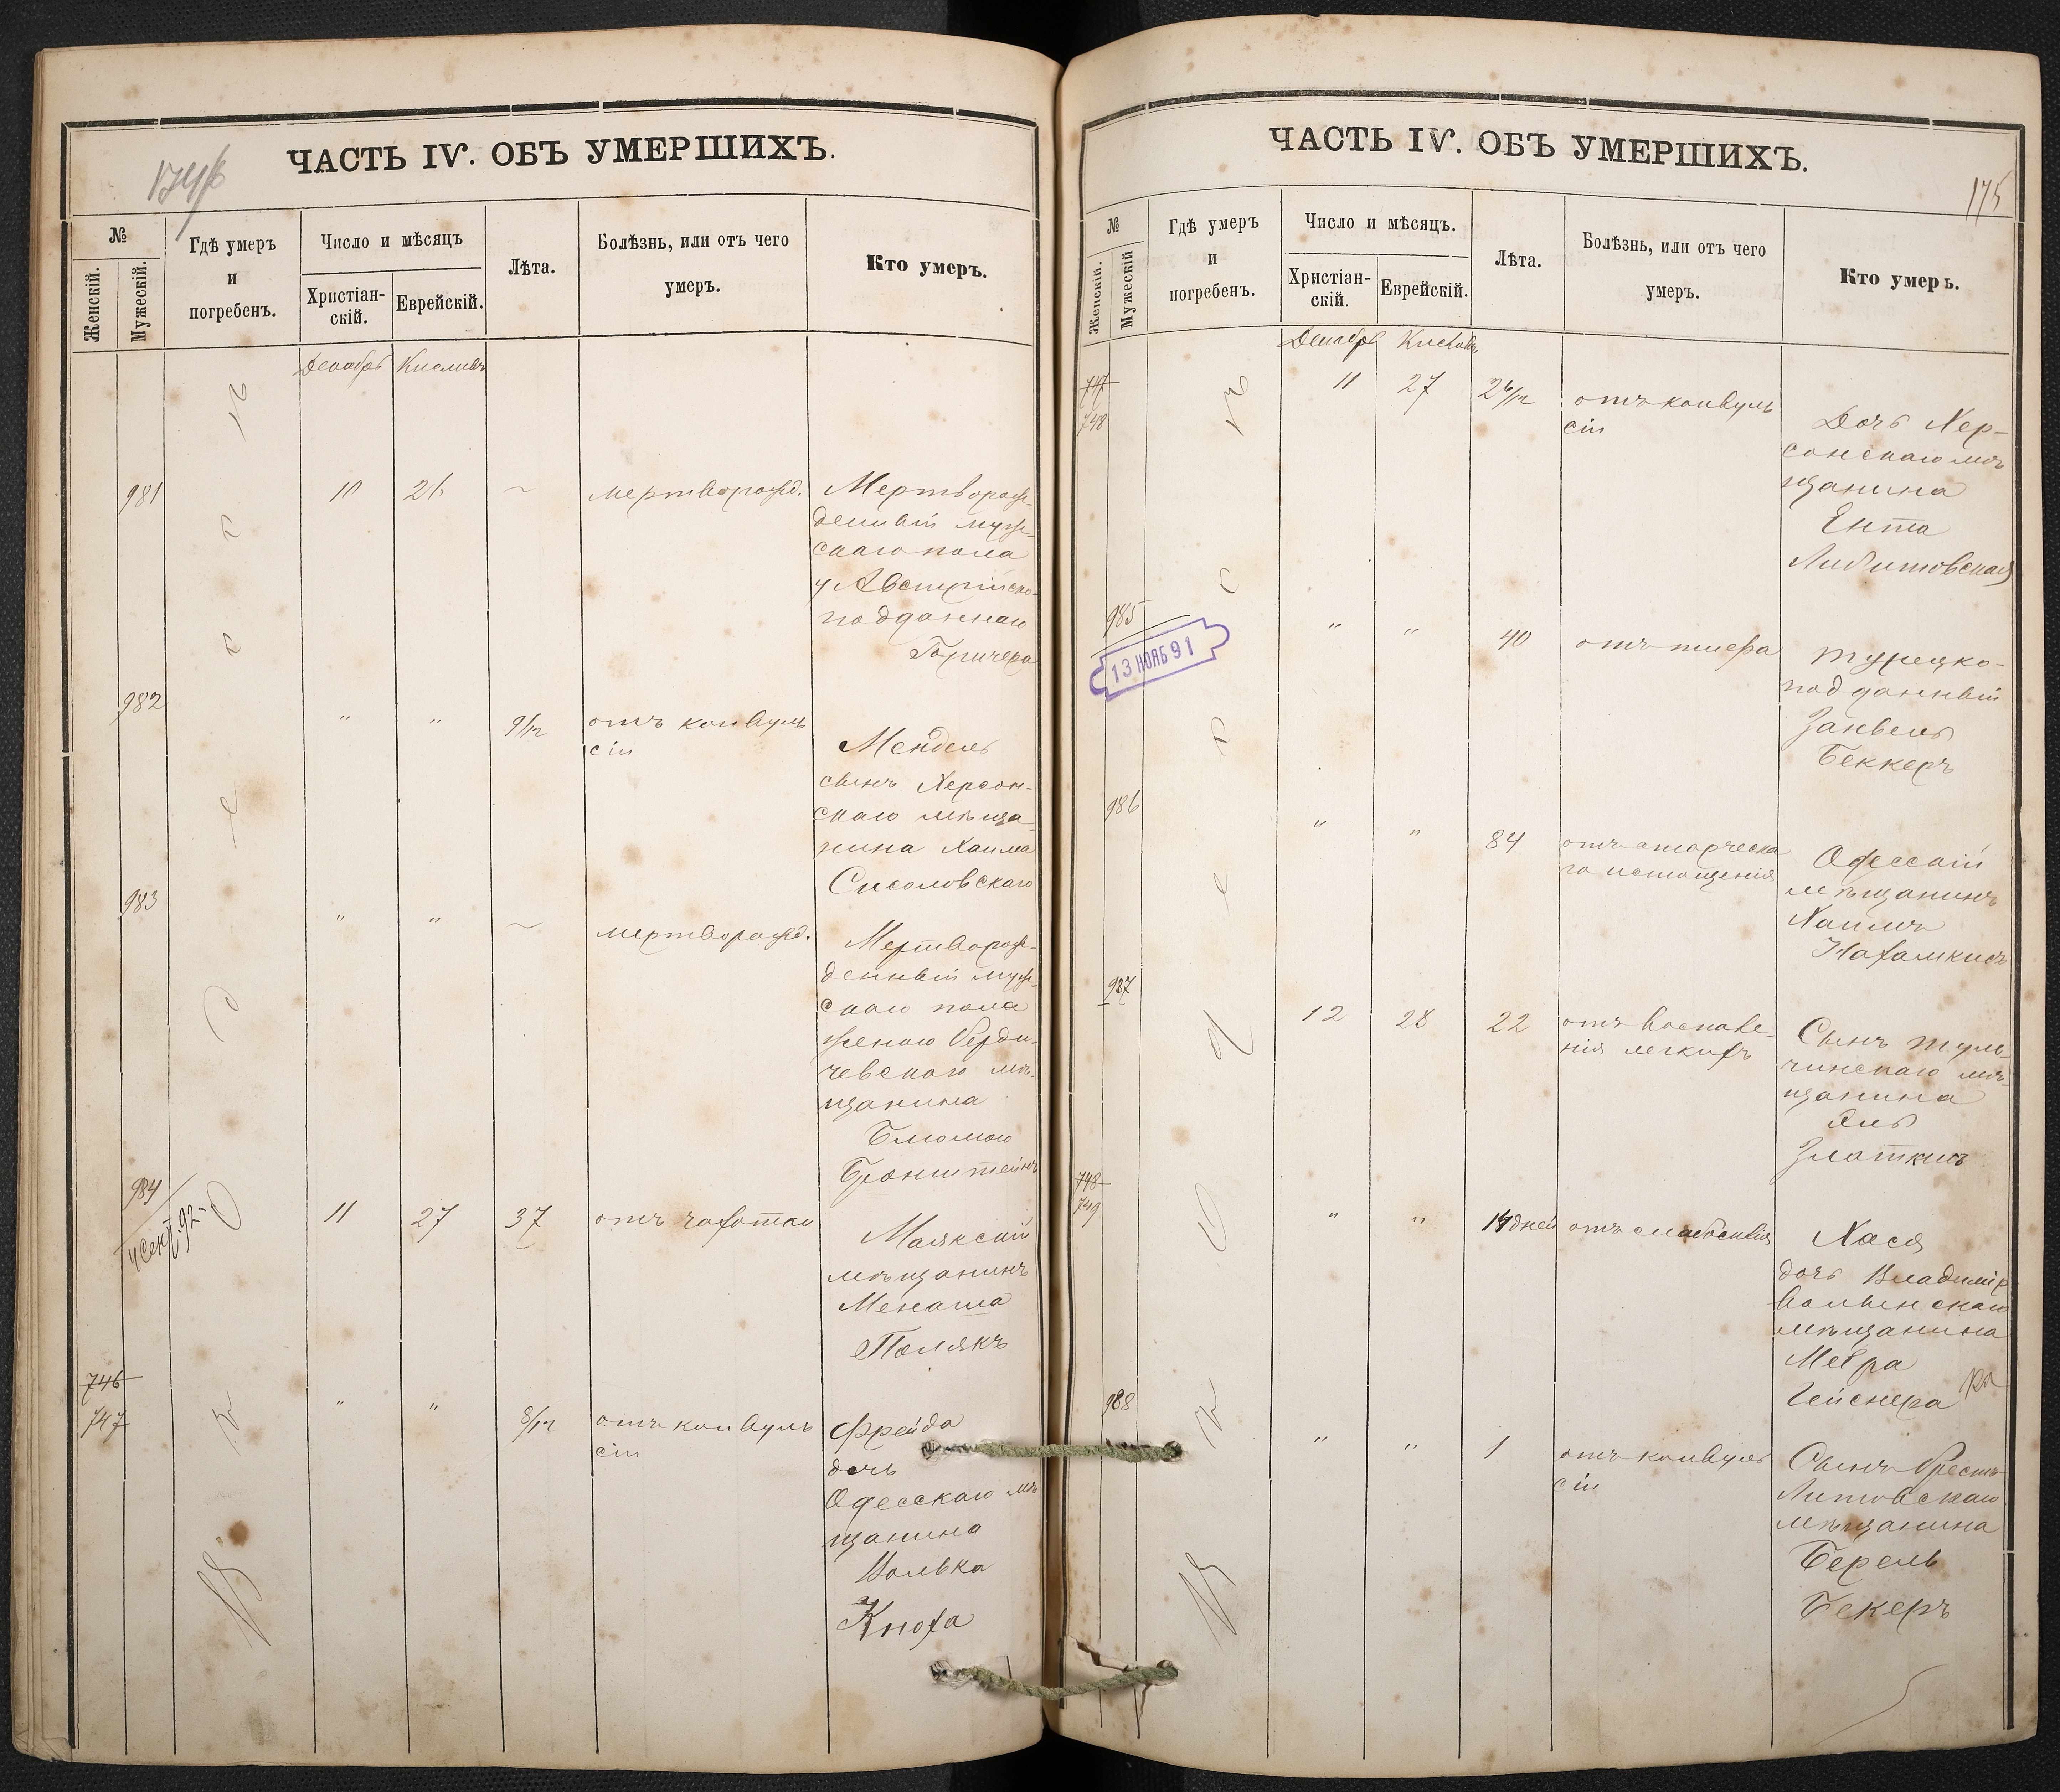 ЧАСТЬ IV. ОБЪ УМЕРШИХЪ.
№
Женскій.
Мужескій.
Гдѣ умеръ
и
погребенъ.
Число и мѣсяцъ
Христіан-
скій.
Еврейскій.
Лѣта.
Болѣзнь, или отъ чего
умеръ.
Кто умеръ.
Декабрь Кислевъ
981 10 26 мертворожд. Мертворож-
денный муж-
скаго пола
у Австрійско-
подданнаго
982 " " 9/12 отъ конвуль
сіи
Мендель
сынъ Херсон-
скаго мѣща-
нина Хаима
983 " " мертворожд. Мертворож-
денный муж-
скаго пола
женою Берди-
чевскаго мѣ-
щанина
Блюмою
Бронштейнъ
984 11 27 37 отъ чахотки
Маякскій
мѣщанинъ
Менаша
Полякъ
746
747 " " 8/12 отъ конвуль
сіи
Фрейда
дочь
Одесскаго мѣ
щанина
Волька
Кноха
въ Одессѣ
ЧАСТЬ IV. ОБЪ УМЕРШИХЪ.
175
№
Женскій.
Мужескій
Гдѣ умеръ
и
погребенъ.
Число и мѣсяцъ.
Христіан-
скій.
Еврейскій.
Лѣта.
Болѣзнь, или отъ чего
умеръ.
Кто умеръ.
Декабрь Кислевъ
747
748 11 27 2 6/12 отъ конвуль
сіи
Дочь Хер-
сонскаго мѣ
щанина
Ента
985 " " 40 отъ тифа
13 НОЯБ 91
Турецко-
подданный
Занвель
Беккеръ
986 " " 84 отъ старческа
го истощенія
Одесскій
мѣщанинъ
Хаимъ
987 12 28 22 отъ воспале-
нія легкихъ
Сынъ Туль-
чинскаго мѣ-
щанина
Злоткинъ
748
749 " " 14 дней отъ слабосилія
Хася
дочь Владимір
Волынскаго
мѣщанина
Меера
Гейснера
988 " " 1 отъ конвуль
сіи
Сынъ Брестъ
Литовскаго
мѣщанина
Берель
Бекеръ
въ Одессѣ